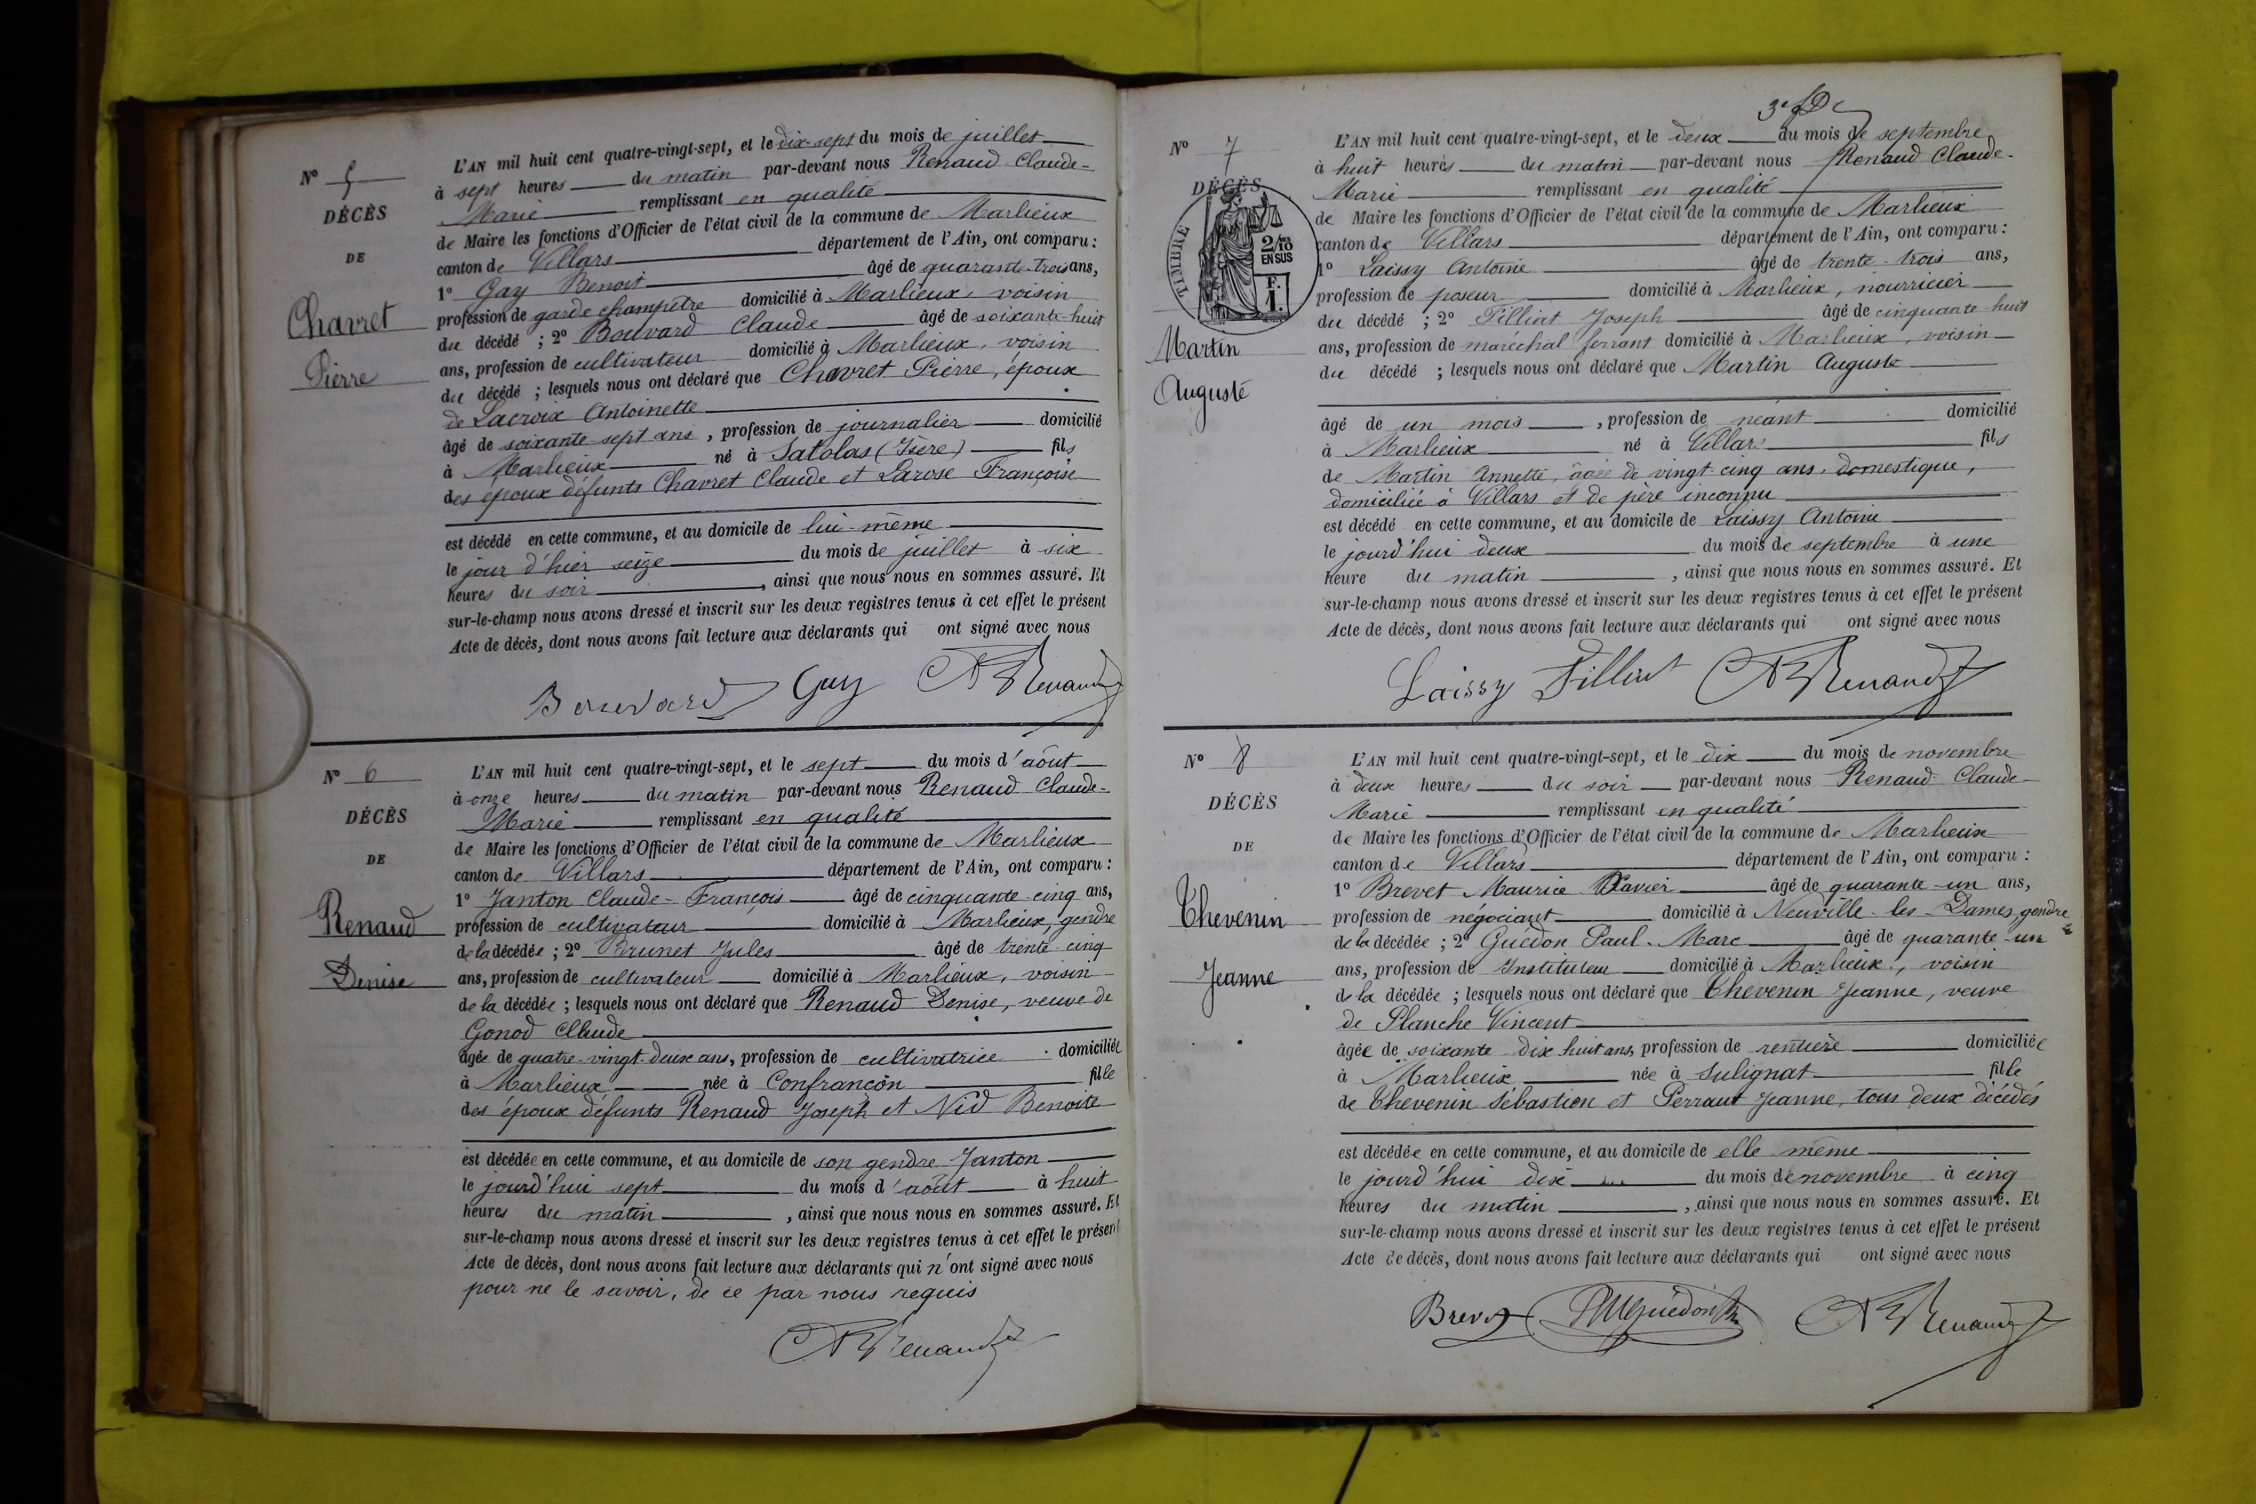 N° 5
DÉCÈS
DE
Chavret
Pierre
L'AN mil huit cent quatre-vingt-sept, et le dix-sept du mois de juillet
à sept heures du matin par-devant nous Renaud Claude-
Marie remplissant en qualité
de Maire les fonctions d'Officier de l'état civil de la commune de Marlieux
canton de Villars département de l'Ain, ont comparu :
1° Gay Benoit âgé de quarante-trois ans,
profession de garde champêtre domicilié à Marlieux, voisin
du décédé ; 2° Bouvard Claude âgé de soixante-huit
ans, profession de cultivateur domicilié à Marlieux, voisin
du décédé ; lesquels nous ont déclaré que Chavret Pierre, époux
de Lacroix Antoinette
âgé de soixante sept ans, profession de journalier domicilié
à Marlieux né à Satolas (Isère) fils
des époux défunts Chavret Claude et Larose Françoise
est décédé en cette commune, et au domicile de lui-même
le jour d'hier seize du mois de juillet à six
heures du soir, ainsi que nous nous en sommes assuré. Et
sur-le-champ nous avons dressé et inscrit sur les deux registres tenus à cet effet le présent
Acte de décès, dont nous avons fait lecture aux déclarants qui ont signé avec nous
Bouvard Gay Renaud
N° 6
DÉCÈS
DE
Renaud
Denise
L'AN mil huit cent quatre-vingt-sept, et le sept du mois d'août
à onze heures du matin par-devant nous Renaud Claude-
Marie remplissant en qualité
de Maire les fonctions d'Officier de l'état civil de la commune de Marlieux
canton de Villars département de l'Ain, ont comparu :
1° Janton Claude-François âgé de cinquante-cinq ans,
profession de cultivateur domicilié à Marlieux, gendre
de la décédée ; 2° Brunet Jules âgé de trente-cinq
ans, profession de cultivateur domicilié à Marlieux, voisin
de la décédée ; lesquels nous ont déclaré que Renaud Denise, veuve de
Gonod Claude
âgée de quatre-vingt-deux ans, profession de cultivatrice domiciliée
à Marlieux née à Confrançon fille
des époux défunts Renaud Joseph et Nid Benoite
est décédée en cette commune, et au domicile de son gendre Janton
le jourd'hui sept du mois d'août à huit
heures du matin, ainsi que nous nous en sommes assuré. Et
sur-le-champ nous avons dressé et inscrit sur les deux registres tenus à cet effet le présent
Acte de décès, dont nous avons fait lecture aux déclarants qui n'ont signé avec nous
pour ne le savoir, de ce par nous requis
Renaud
N° 7
DÉCÈS
TIMBRE
2/10
EN SUS
F.
1.
Martin
Auguste
L'AN mil huit cent quatre-vingt-sept, et le deux du mois de septembre
à huit heures du matin par-devant nous Renaud Claude-
Marie remplissant en qualité
de Maire les fonctions d'Officier de l'état civil de la commune de Marlieux
canton de Villars département de l'Ain, ont comparu :
1° Laissy Antoine âgé de trente-trois ans,
profession de poseur domicilié à Marlieux, nourricier
du décédé ; 2° Filliat Joseph âgé de cinquante-huit
ans, profession de maréchal ferrant domicilié à Marlieux, voisin
du décédé ; lesquels nous ont déclaré que Martin Auguste
âgé de un mois, profession de néant domicilié
à Marlieux né à Villars fils
de Martin Annette, âgée de vingt-cinq ans, domestique,
domiciliée à Villars et de père inconnu
est décédé en cette commune, et au domicile de Laissy Antoine
le jourd'hui deux du mois de septembre à une
heure du matin, ainsi que nous nous en sommes assuré. Et
sur-le-champ nous avons dressé et inscrit sur les deux registres tenus à cet effet le présent
Acte de décès, dont nous avons fait lecture aux déclarants qui ont signé avec nous
Laissy Filliat Renaud
N° 8
DÉCÈS
DE
Thevenin
Jeanne
L'AN mil huit cent quatre-vingt-sept, et le dix du mois de novembre
à deux heures du soir par-devant nous Renaud Claude-
Marie remplissant en qualité
de Maire les fonctions d'Officier de l'état civil de la commune de Marlieux
canton de Villars département de l'Ain, ont comparu :
1° Brevet Maurice Xavier âgé de quarante-un ans,
profession de négociant domicilié à Neuville-les-Dames, gendre
de la décédée ; 2° Guédon Paul-Marc âgé de quarante-un
ans, profession de Instituteur domicilié à Marlieux, voisin
de la décédée ; lesquels nous ont déclaré que Thevenin Jeanne, veuve
de Planche Vincent
âgée de soixante-dix huit ans, profession de rentière domiciliée
à Marlieux née à Sulignat fille
de Thevenin Sébastien et Perraut Jeanne, tous deux décédés
est décédée en cette commune, et au domicile de elle même
le jourd'hui dix du mois de novembre à cinq
heures du matin, ainsi que nous nous en sommes assuré. Et
sur-le-champ nous avons dressé et inscrit sur les deux registres tenus à cet effet le présent
Acte de décès, dont nous avons fait lecture aux déclarants qui ont signé avec nous
Brevet PMGuédon Renaud